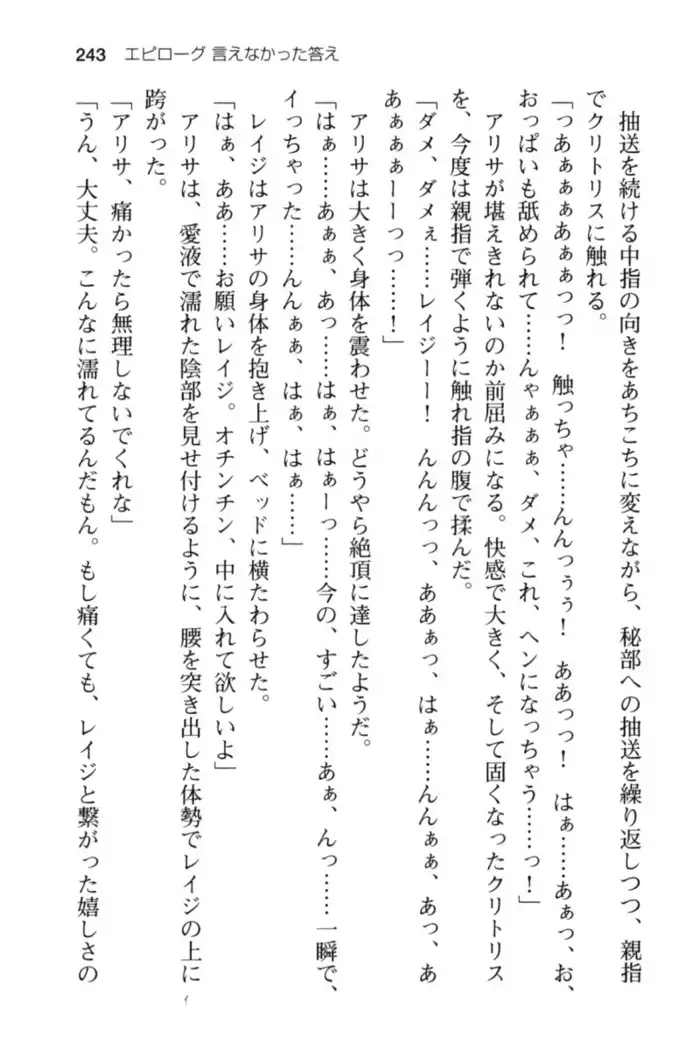 243 エピローグ 言えなかった答え
抽送を続ける中指の向きをあちこちに変えながら、秘部への抽送を繰り返しつつ、親指
でクリトリスに触れる。
「つあぁぁぁあぁぁっっ！　触っちゃ……んんっぅぅ！　ああっっ！　はぁ……あぁっ、お、
おっぱいも舐められて……んゃぁぁぁ、ダメ、これ、ヘンになっちゃう……っ！」
アリサが堪えきれないのか前屈みになる。快感で大きく、そして固くなったクリトリス
を、今度は親指で弾くように触れ指の腹で揉んだ。
「ダメ、ダメぇ……レイジーー！　んんんっっ、ああぁっ、はぁ……んんぁぁ、あっ、あ
あぁぁぁーーっっ……！」
アリサは大きく身体を震わせた。どうやら絶頂に達したようだ。
「はぁ……あぁぁ、あっ……はぁ、はぁーっ……今の、すごい……あぁ、んっ……一瞬で、
イっちゃった……んんぁぁ、はぁ、はぁ……」
レイジはアリサの身体を抱き上げ、ベッドに横たわらせた。
「はぁ、ああ……お願いレイジ。オチンチン、中に入れて欲しいよ」
アリサは、愛液で濡れた陰部を見せ付けるように、腰を突き出した体勢でレイジの上に
跨がった。
「アリサ、痛かったら無理しないでくれな」
「うん、大丈夫。こんなに濡れてるんだもん。もし痛くても、レイジと繋がった嬉しさの